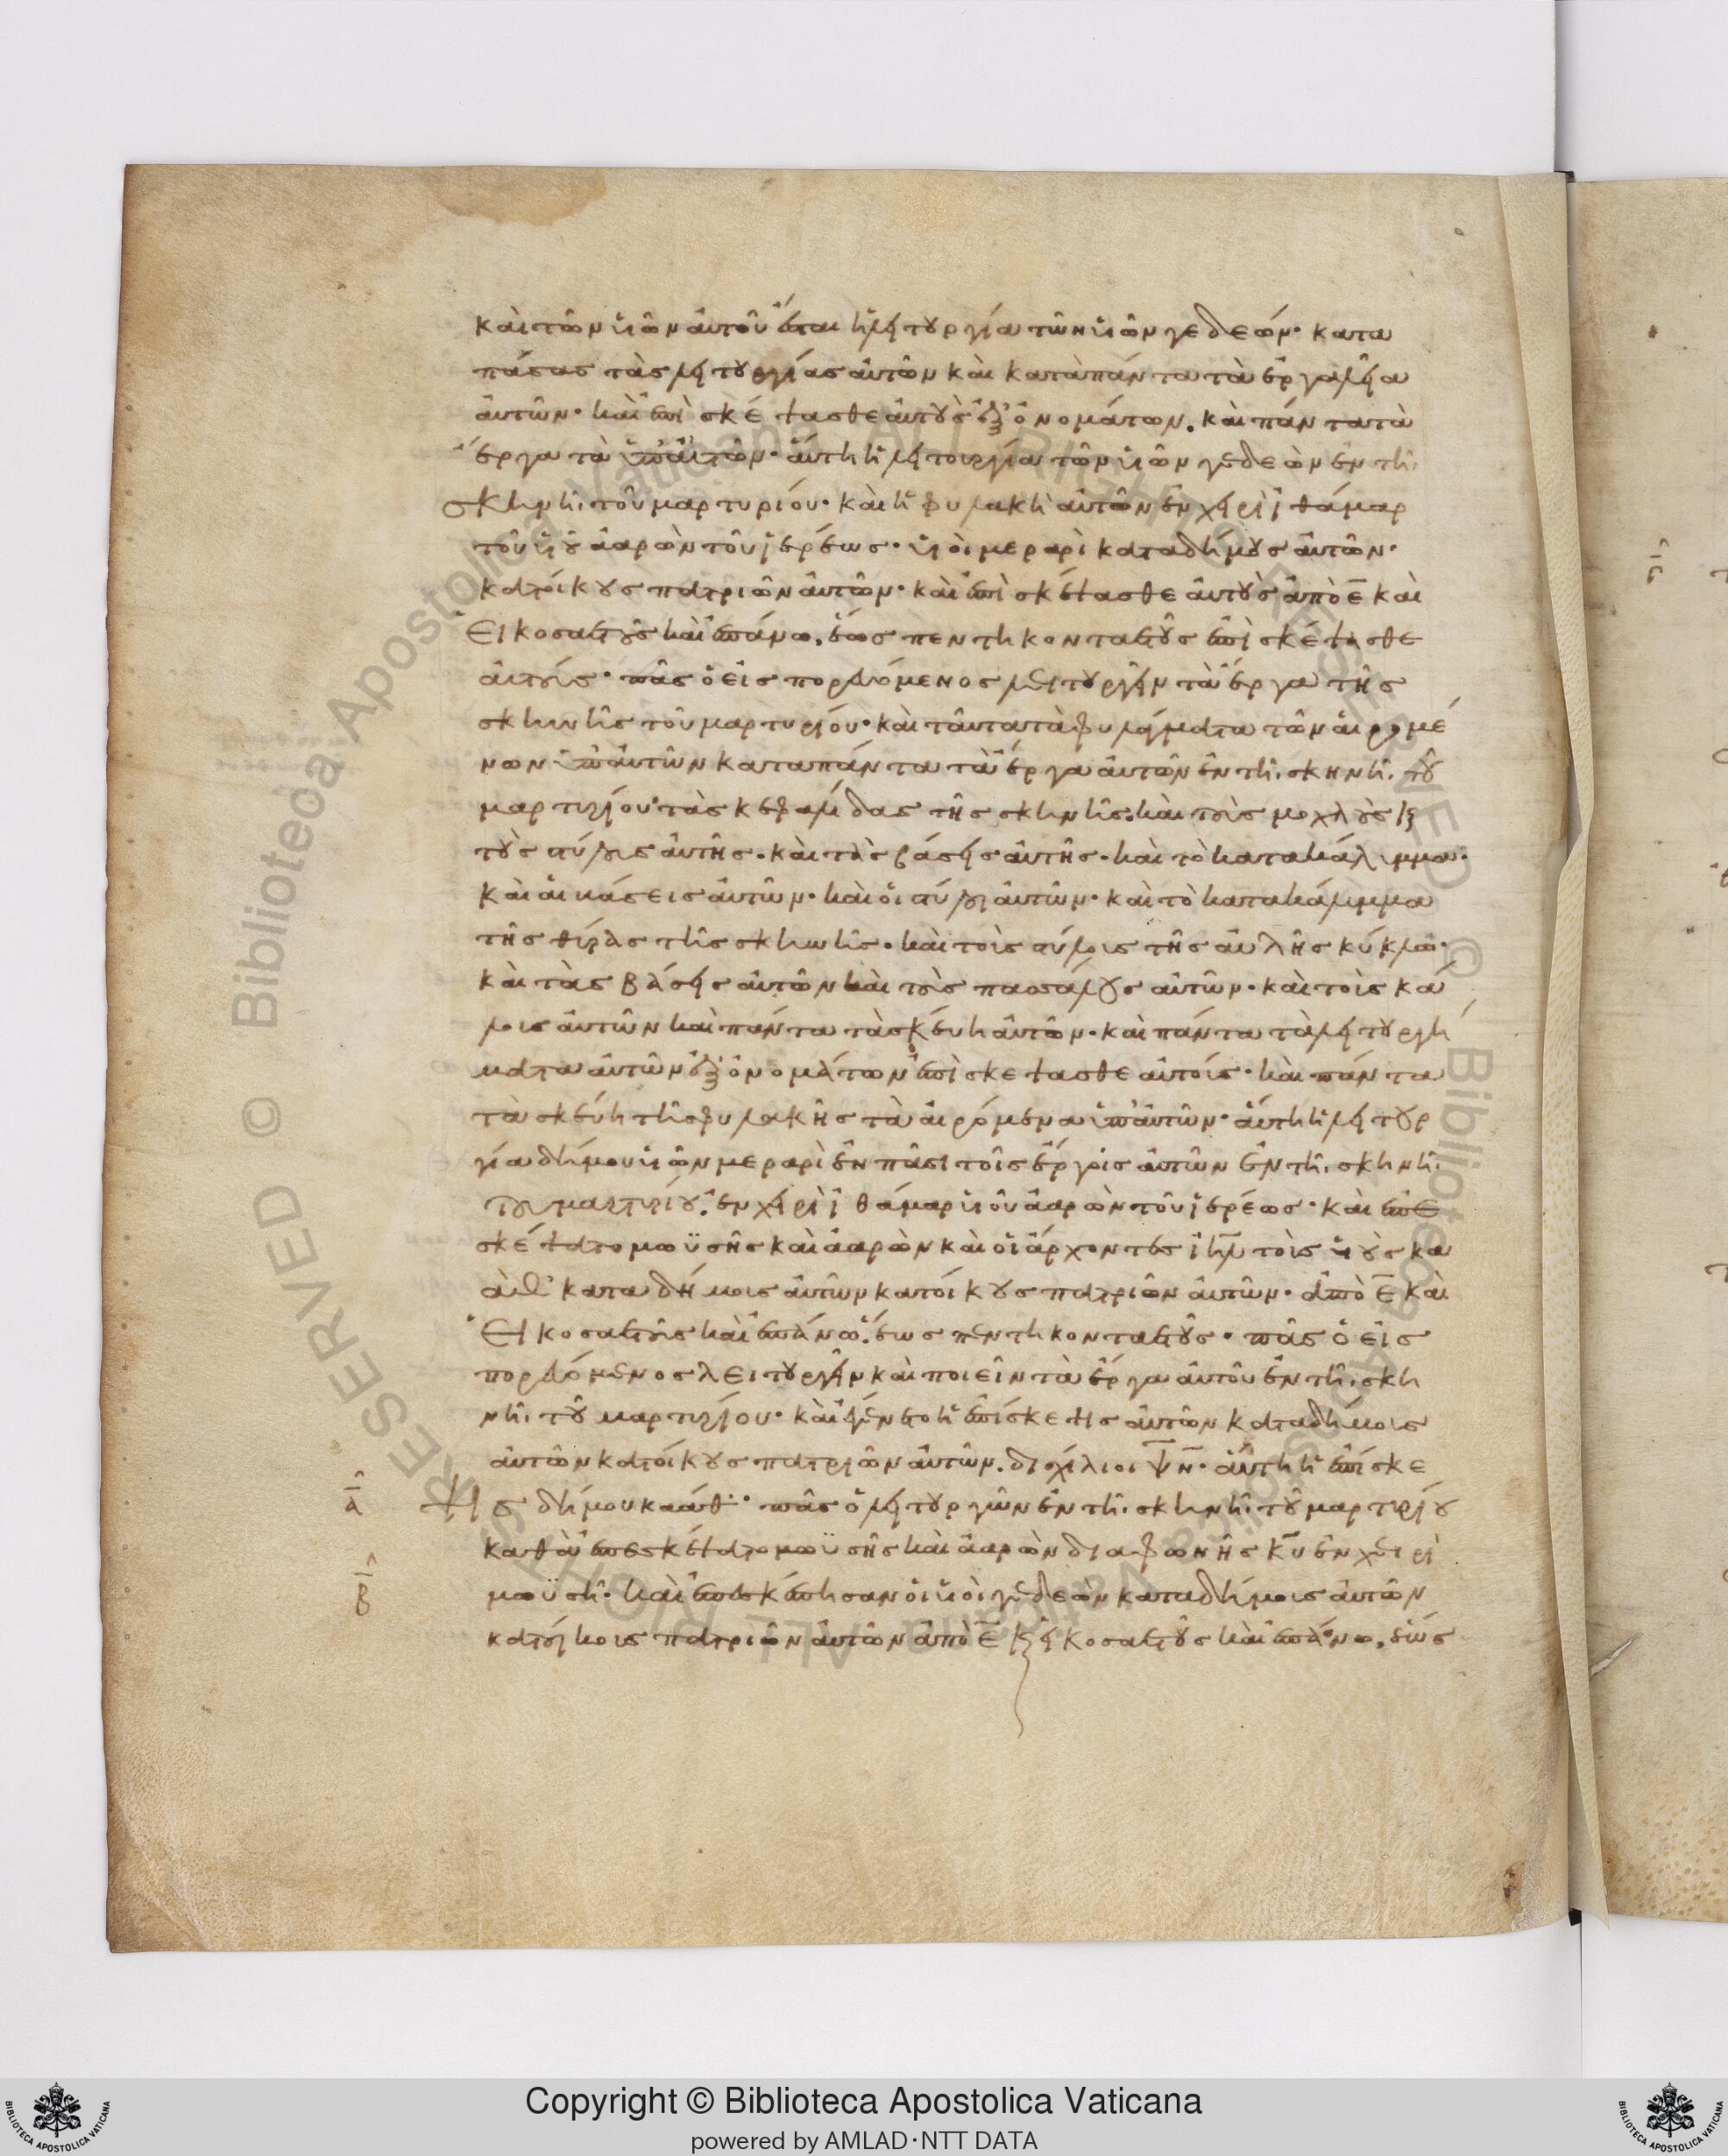 καὶ τῶν υἱῶν αὐτοῦ ἔσται ἡ λειτουργία τῶν υἱῶν γεδεών· κατα
πάσας τὰς λειτουργίας αὐτῶν καὶ κατὰ πάντα τὰ ἐργαλεῖα
αὐτῶν· καὶ ἐπισκέψασθε αὐτοὺς ἐξ ὀνομάτων. καὶ πάντα τὰ
ἔργα τὰ ὑπ' αὐτῶν· αὕτη ἡ λειτουργία τῶν υἱῶν γεδεὼν ἐν τῆ
σκηνῆ τοῦ μαρτυρίου· καὶ ἡ φυλακὴ αὐτῶν ἐν χειρὶ ἰθάμαρ
τοῦ υἱοῦ ἀαρὼν τοῦ ἱερέως· υἱοὶ μεραρὶ κατα δήμους αὐτῶν·
κατ' οἴκους πατριῶν αὐτῶν· καὶ ἐπισκέψασθε αὐτοὺς ἀπὸ ε̄ καὶ
εἰκοσαετοῦς καὶ ἐπάνω, ἕως πεντηκονταετοῦς ἐπισκέψασθε
αὐτούς· πᾶς ὁ εἰσπορευόμενος λειτουργεῖν τὰ ἔργα τῆς
σκηνῆς τοῦ μαρτυρίου· καὶ ταῦτα τὰ φυλάγματα τῶν αἰρομέ
νων ὑπ' αὐτῶν κατα πάντα τὰ ἔργα αὐτῶν ἐν τῆ σκηνῆ τοῦ
μαρτυρίου· τὰς κεφαλίδας τῆς σκηνῆς· καὶ τοὺς μοχλοὺς καὶ
τοὺς στύλους αὐτῆς· καὶ τὰς βάσεις αὐτῆς· καὶ τὸ κατακάλυμμα·
καὶ αἱ βάσεις αὐτῶν· καὶ οἱ στύλοι αὐτῶν· καὶ τὸ κατακάλυμμα
τῆς θύρας τῆς σκηνῆς· καὶ τοὺς στύλους τῆς αὐλῆς κύκλω·
καὶ τὰς βάσεις αὐτῶν καὶ τοὺς πασσάλους αὐτῶν· καὶ τοὺς κά
λους αὐτῶν καὶ πάντα τὰ σκεύη αὐτῶν· καὶ πάντα τὰ λειτουργή
ματα αὐτῶν ἐξ ὀνομάτων ἐπισκέψασθε αὐτούς· καὶ πάντα
τὰ σκεύη τῆς φυλακῆς τὰ αἰρόμενα ὑπ' αὐτῶν· αὕτη ἡ λειτουρ
γία δήμου υἱῶν μεραρὶ ἐν πᾶσι τοῖς ἔργοις αὐτῶν ἐν τῆ σκηνῆ
τοῦ μαρτυρίου· ἐν χειρὶ ἰθάμαρ υἱοῦ ἀαρὼν τοῦ ἱερέως· καὶ ἐπε
σκέψατο μωϋσῆς καὶ ἀαρὼν καὶ οἱ ἄρχοντες ἰηλ τοὺς υἱοὺς κα
ὰθ κατα δήμους αὐτῶν κατ' οἴκους πατριῶν αὐτῶν· ἀπὸ ε̄ καὶ
εἰκοσαετοῦς καὶ ἐπάνω· ἕως πεντηκονταετοῦς· πᾶς ὁ εἰσ
πορευόμενος λειτουργεῖν καὶ ποιεῖν τὰ ἔργα αὐτοῦ ἐν τῆ σκη
νῆ τοῦ μαρτυρίου· καὶ ἐγένετο ἡ ἐπίσκεψις αὐτῶν κατα δήμους
αὐτῶν κατ' οἴκους πατριῶν αὐτῶν. δισχίλιοι ψ̄ν̄· αὕτη ἡ ἐπίσκε
ᾱ ψις δήμου καάθ· πᾶς ὁ λειτουργῶν ἐν τῆ σκηνῆ τοῦ μαρτυρίου
καθὰ ἐπεσκέψατο μωϋσῆς καὶ ἀαρὼν δια φωνῆς κυ ἐν χειρὶ
β̄ μωϋσῆ· καὶ ἐπεσκέπησαν οἱ υἱοὶ γεδεὼν κατα δήμους αὐτῶν
κατ' οἴκους πατριῶν αὐτῶν ἀπὸ ε̄ καὶ εἰκοσαετοῦς καὶ ἐπάνω, ἕως
Copyright © Biblioteca Apostolica Vaticana
powered by AMLAD·NTT DATA